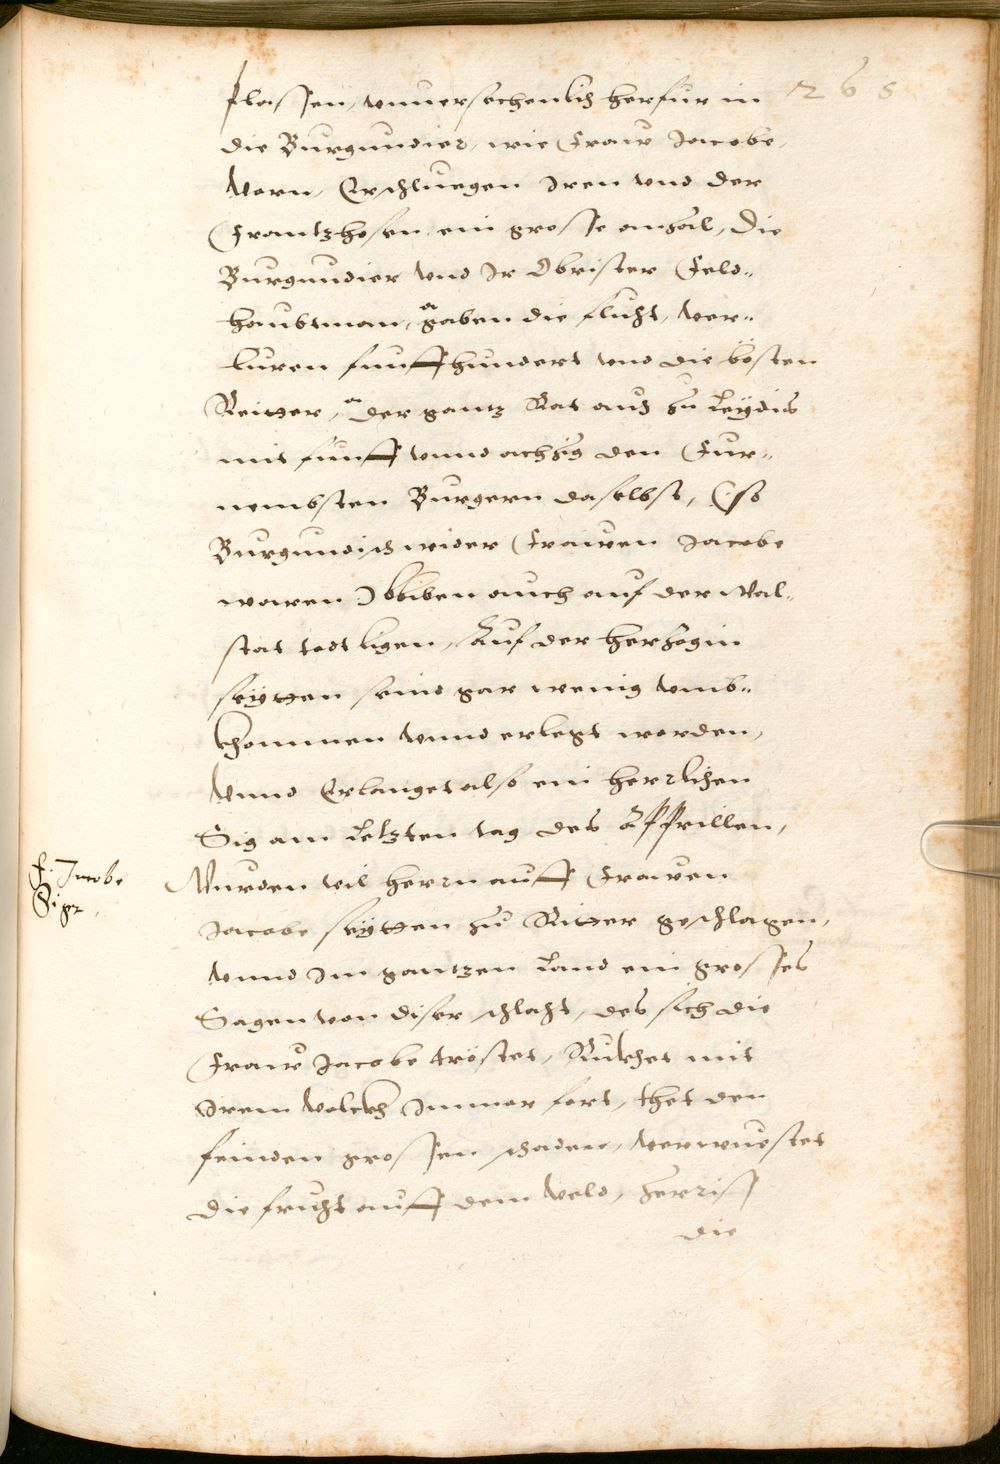 265
flassen, vnuersechenlich herfur in
die Burgundier, wie Fraw Jacobe,
Varn, Erschluegen Iren vnd der
Frantzhosen ein grosse anzal, Die
Burgundier vnd Ir Obrister Feld-
haubtman, gaben die flucht, ver-
luren funffhundert vnd die bösten
Reitter, der gantz Rat auß zu Leydis
mit funff vnnd achzig den Fur-
nembsten Burgern daselbst, (so
Burgundisch wider Frawen Jacobe
waren) bliben auch auf der Wal-
stat todt ligen, Auf der herzogin
seytten seind gar wenig vmb-
khommen vnnd erlegt worden,
Vnnd Erlanget also ein herrlichen
Sig am Letzten tag des Affrillen,
Wurden vil herrn auff Frawen
F. Jacobe
Sigt
Jacobe seytten zu Ritter geschlagen,
vnnd Im gantzen Land ein grosses
Sagen von diser schlacht, des sich die
Fraw Jacobe tröstet, Rukhet mit
Irem Volckh Immer fort, thet den
feinden grossen schaden, verwuestet
die frucht auff dem Veld, zerriss
die